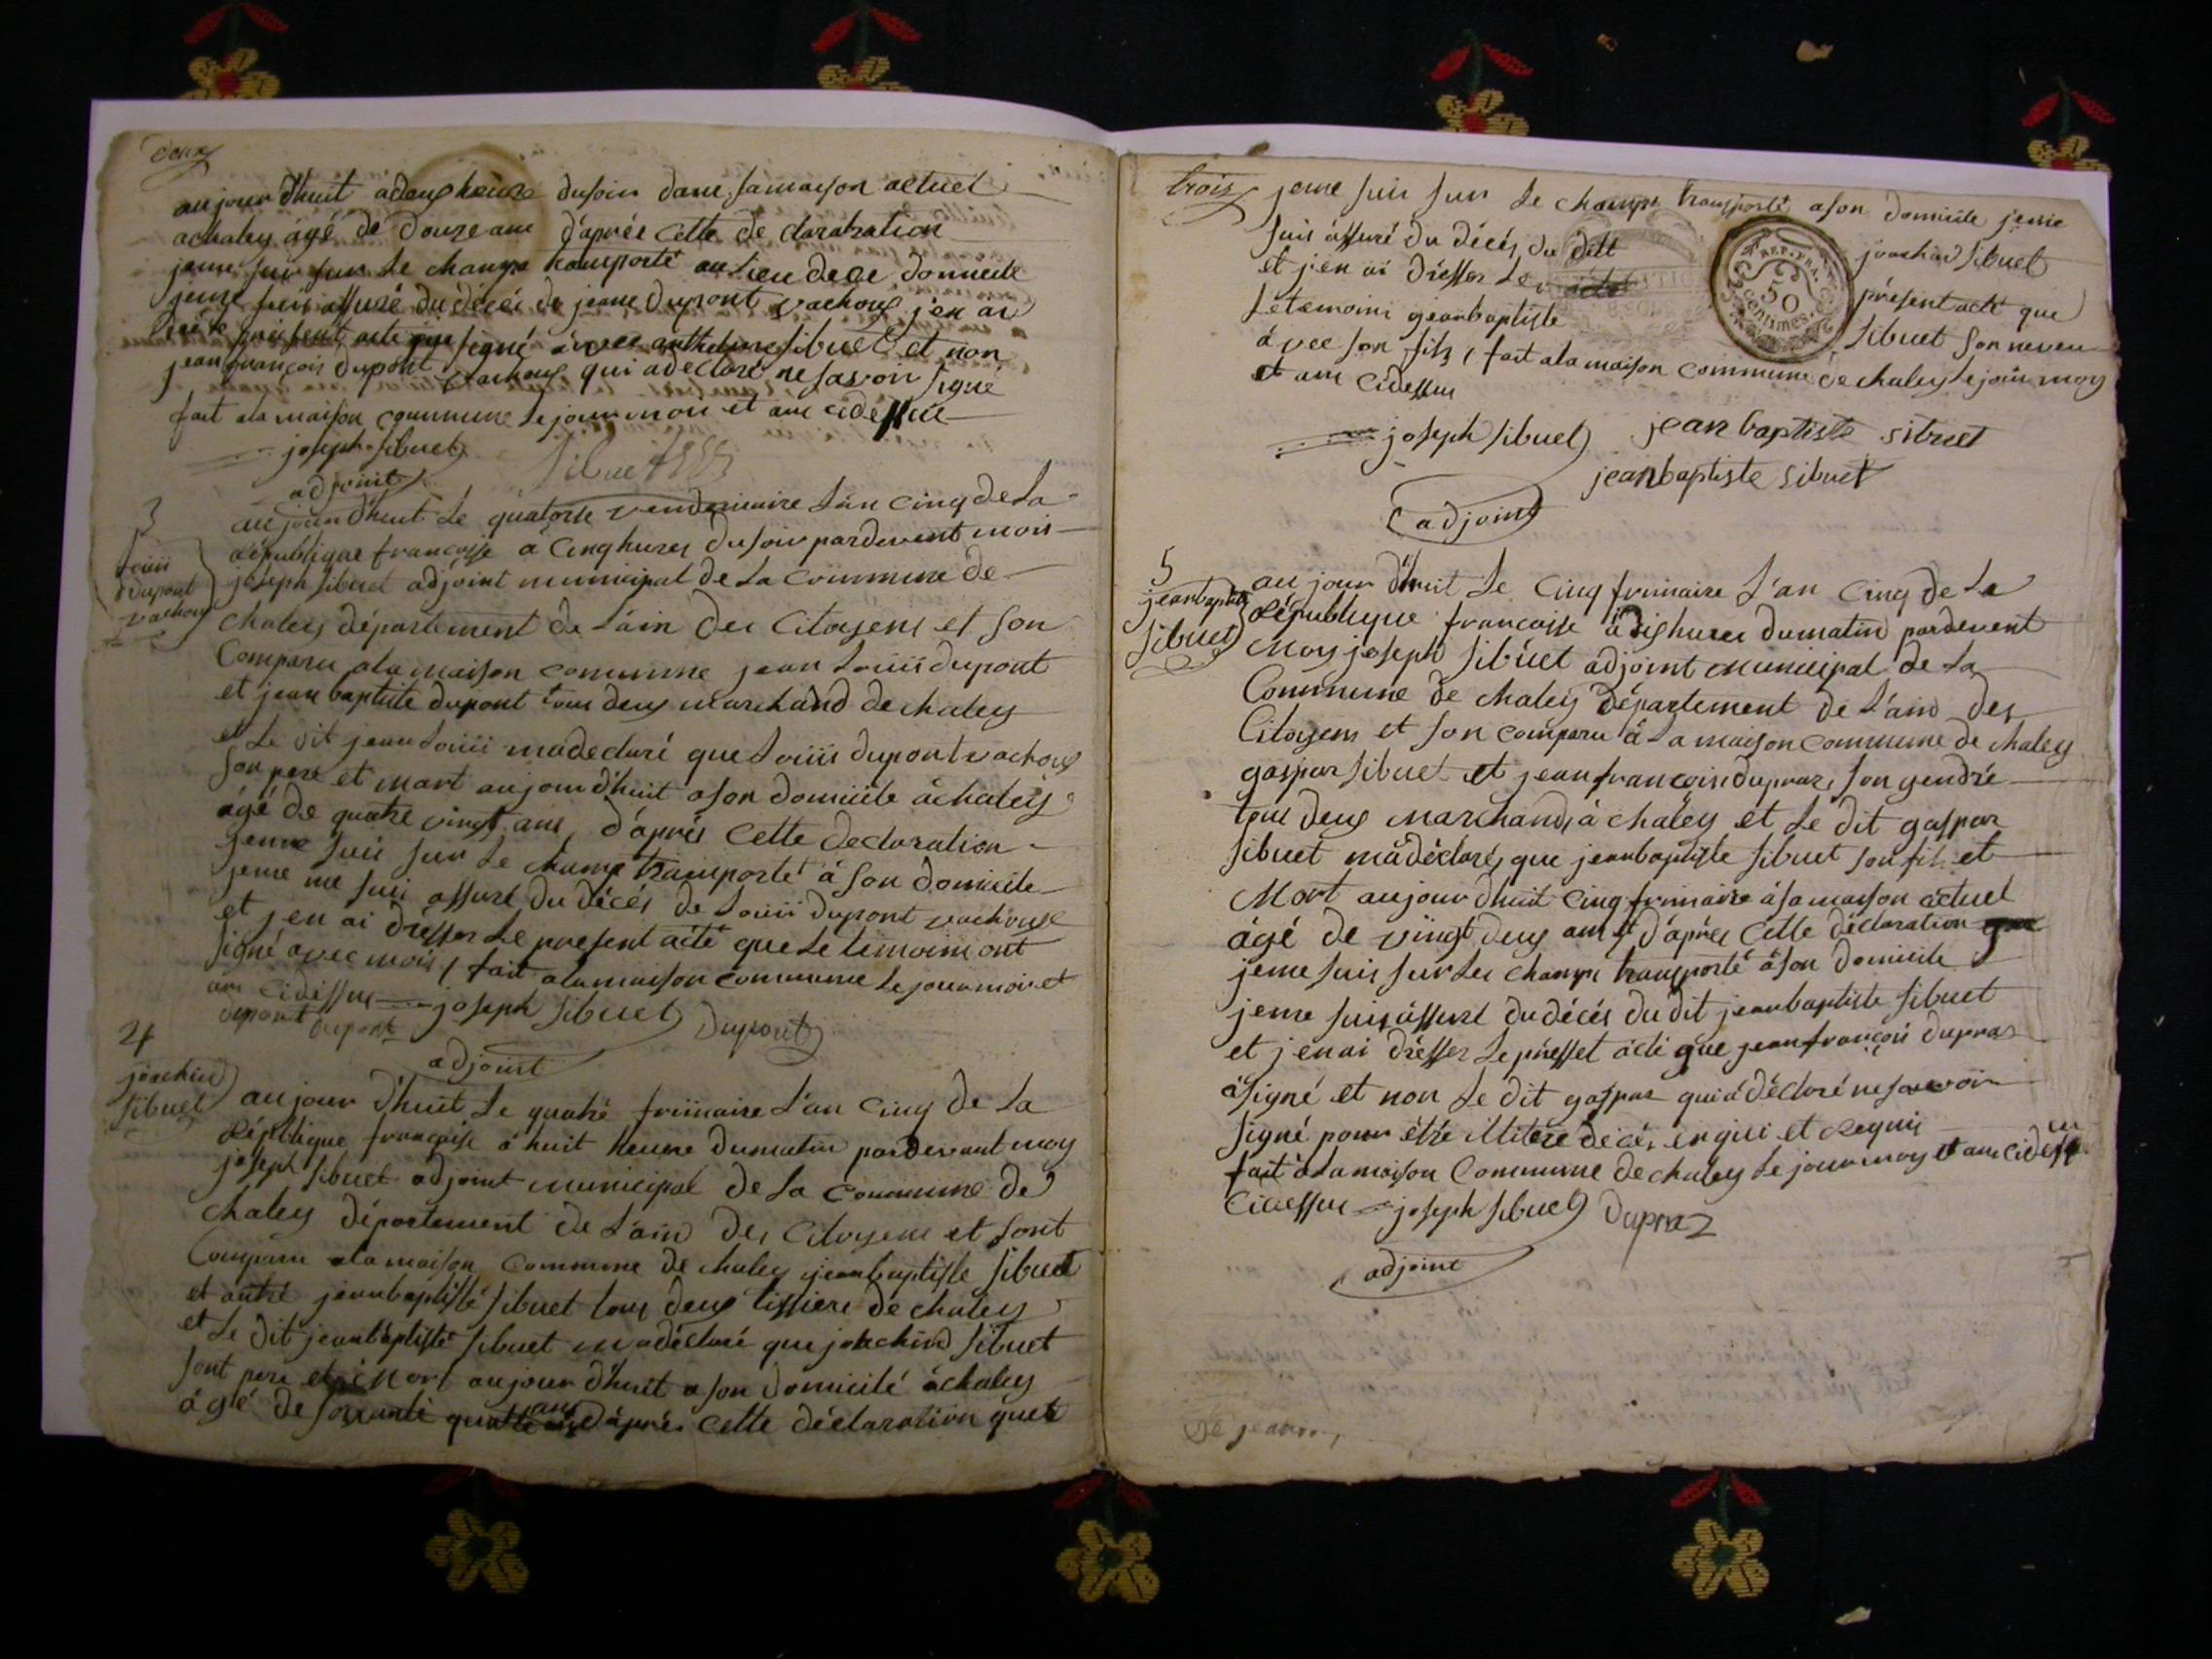 deux
aujourdhuit adeux heure dusoir dans samaison actuel
achaley agé de douze ans d'aprés cette de claratration
jeme suis sur le champs transporté au lieu dece domicile
jeme suis assuré du décés de jeanne dupont vachoux j'en ai
présent acte que signé avec anthelme sibuet et non
jean françois dupont vachoux qui adeclaré ne savoir signé
fait ala maison commune lejour mois et ans cidessus
joseph sibuet
adjoint
3
louiii
dupont
vachoux
aujourdhuit le quatorse vendemiaire l'an cinq de la
république francoise à cinq hures du soir pardevent mois
joseph sibuet adjoint municipal de la commune de
chaley département de l'ain des citoyens et son
comparu ala maison comunne jean louiii dupont
et jean baptiste dupont tous deux marchand de chaley
et le dit jean louiii madeclaré que louiii dupont vachoux
son pere et mort aujourdhuit ason domicile àchaley
âgé de quatre vingt ans, d'aprés cette declaration
jeme suis sur le champ transporté à son domicile
jeme me suis assuré du décés de louiii dupont vachouse
et j'en ai drésser le présent acté que le témoins ont
signé avec mois, fait alamaison commune le jour mois et
ans cidessus joseph sibuet Dupont
dupont dupont
adjoint
4
joachin
sibuet
aujour d'huit le quatré frimaire l'an cinq de la
république françoise à huit heure dumatin pardevant moy
joseph sibuet adjoint municipal de la commune de
chaley département de l'ain des citoyens et sont
comparu ala maison commune de chaley jeanbaptiste sibuet
et autré jeanbaptiste sibuet tous deux tissiere de chaley
et le dit jeanbaptiste sibuet madéclaré que joachind sibuet
sont pere et mort aujour d'huit a son domicilé àchaley
âgé de soixanté quatre ans d'aprés cette déclaration
trois
jeme suis sur le champs transporté ason domicile jeme
suis assuré du décés du ditt joachin sibuet
et j'en ai drésser le présent acté que
letemoins jeanbaptiste sibuet son neveu
àvec son fils, fait ala maison commune de chaley le jour moy
et ans cidessus
REP. FRA.
50
centimes.
joseph sibuet jean baptiste sibuet
jeanbaptiste sibuet
adjoint
5
jeanbaptiste
sibuet
aujour d'huit le cinq frimaire l'an cinq de la
république francoisse à dix hures dumatin pardevent
moy joseph sibuet adjoint municipal de la
commune de chaley département de l'ain des
citoyens et son comparu à la maison commune de chaley
gaspar sibuet et jeanfrancois dupraz son gendré
tous deux marchands à chaley et le dit gaspar
sibuet màdéclaré que jeanbaptiste sibuet son fils et
mort aujour d'huit cinq frimaire àsa maison actuel
âgé de vingt deux ans et d'aprés cette déclaration que
jeme suis sur les champs transporté àson domicile
jeme suis assuré du décés du dit jeanbaptiste sibuet
et j'enai drésser le présset acté que jeanfrançois dupras
àsigné et non le dit gaspar qui à déclaré ne savoir
signé pour étré décés enqui et requis
fait à la maison commune de chaley le jour moy et ans cidessu
cidessus joseph sibuet Dupraz
adjoint